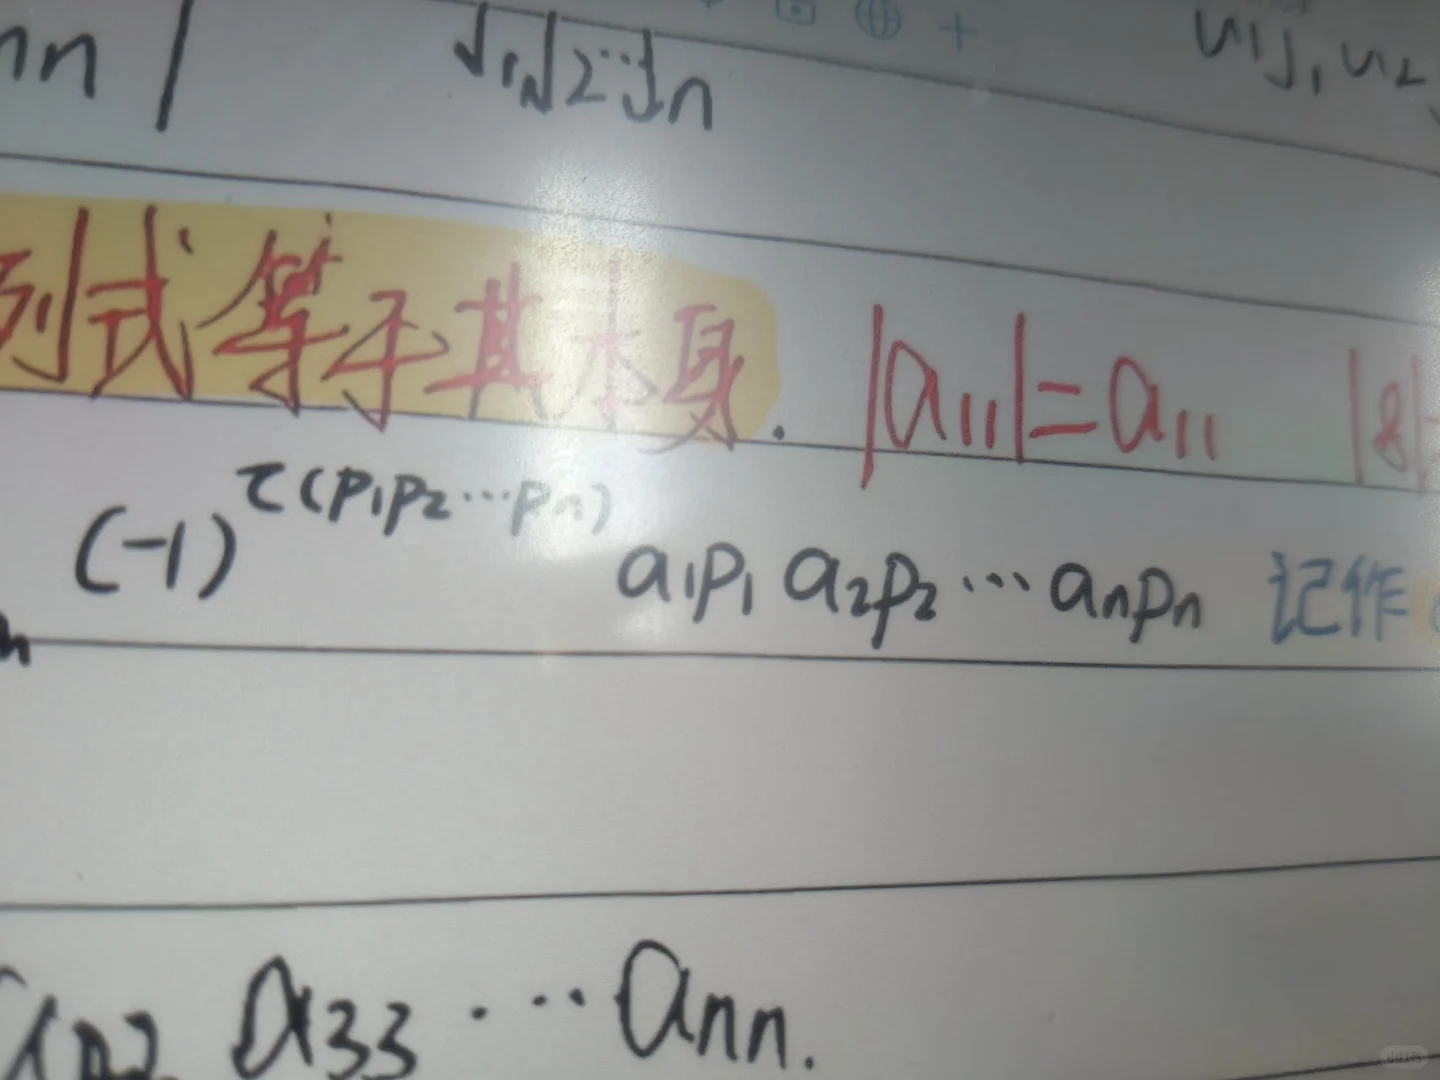 nn | j₁j₂…jₙ
列式等于其本身. |a₁₁|=a₁₁ |8|=
(-1)^τ(p₁p₂…pₙ) a₁p₁ a₂p₂…aₙpₙ 记作
a₃₃…aₙₙ.